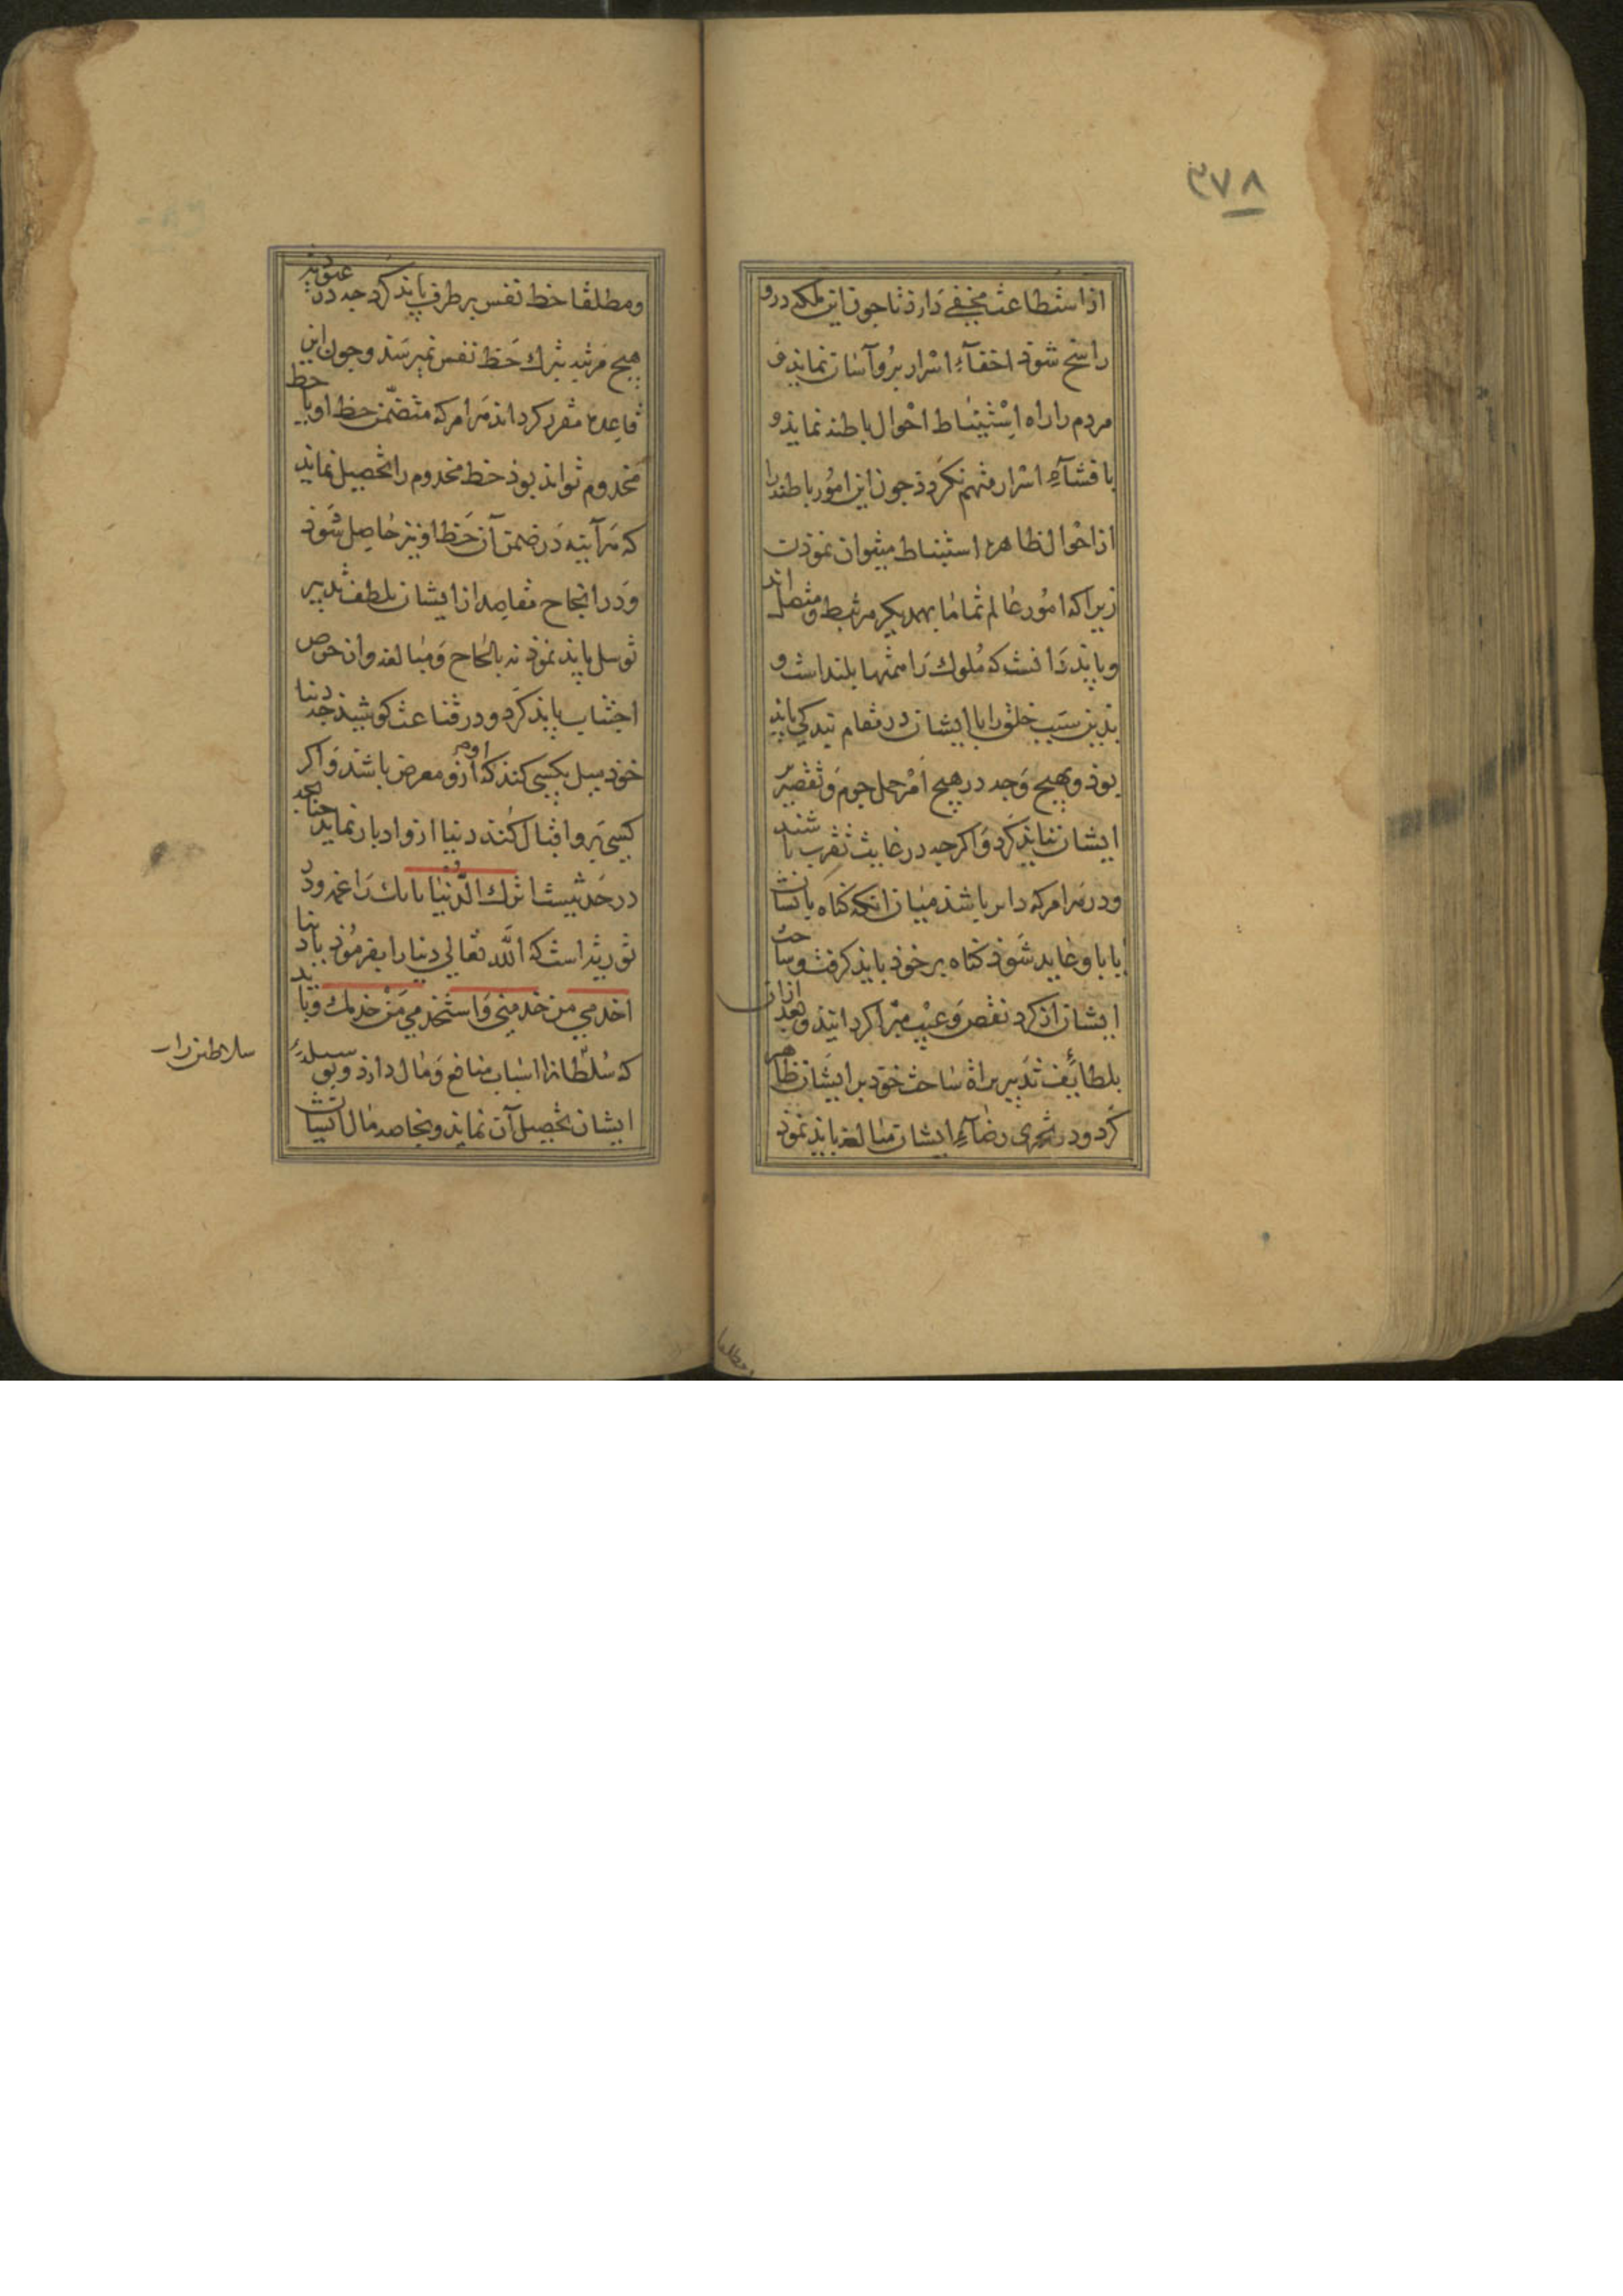 ۳۷۸
از استطاعت مخفی دارذ تا جون این ملکه درو
راسخ شوذ اخفآءِ اسرار برو آسان نمایذ و
مردم را راه استنباط احوال باطنه نمایذ و
بافشآءِ اسرار متهم نکردذ جون این امور باطنه را
از احوال ظاهره استنباط میتوان نموذن
زیراکه امور عالم تماما بهمدیکر مرتبط و متصل اند
و بایذ دانست که ملوک را همتها بلند است و
بدین سبب خلق را با ایشان در مقام بندکی بایذ
بوذ و بهیچ وجه در هیچ امر حمل جرم و تقصیر بر
ایشان نبایذ کرد و اکرجه در غایت تقرب باشند
و در هر امر که دایر باشذ میان انکه کناه بانسان
یا باو عاید شوذ کناه بر خوذ بایذ کرفت و ساحت
ایشان از کرد نقص و عیب مبرا کردانیذ و بعد ازان
بلطائف تدبیر براة ساحت خوذ بر ایشان ظاهر
کرد و در تحری رضآءِ ایشان مبالغه بایذ نموذ
ومطلقا
ومطلقا حظ نفس بر طرف بایذ کرد جه در عبودیت
هیچ مرتبه بترک حظ نفس نمیرسذ و جون این
قاعده مقرر کرد اند هر امر که متضمن حظ او یا حظ
مخدوم تواند بوذ حظ مخدوم را تحصیل نمایذ
که هرآینه در ضمن آن حظ او نیز حاصل شوذ
و در انجاح مقاصد از ایشان بلطف تدبیر
توسل بایذ نموذ نه بالحاح و مبالغه و از حرص
اجتناب بایذ کرد و در قناعت کوشیذ جه دنیا
خوذ میل بکسی کنذ که او ازو معرض باشذ و اکر
کسی برو اقبال کنذ دنیا ازو ادبار نمایذ جنانجه
در حدیثست اترک الدنیا تأتک راغمة و در
توریة است که اللّه تعالی دنیا را بفرموذ یا دنیا
اخدمی من خدمنی و استخدمی من خدمک و بایذ
که سلطانرا اسباب منافع و مال دارذ و بوسیلهٔ
ایشان تحصیل آن نمایذ و بخاصه مال انسان
سلاطین را